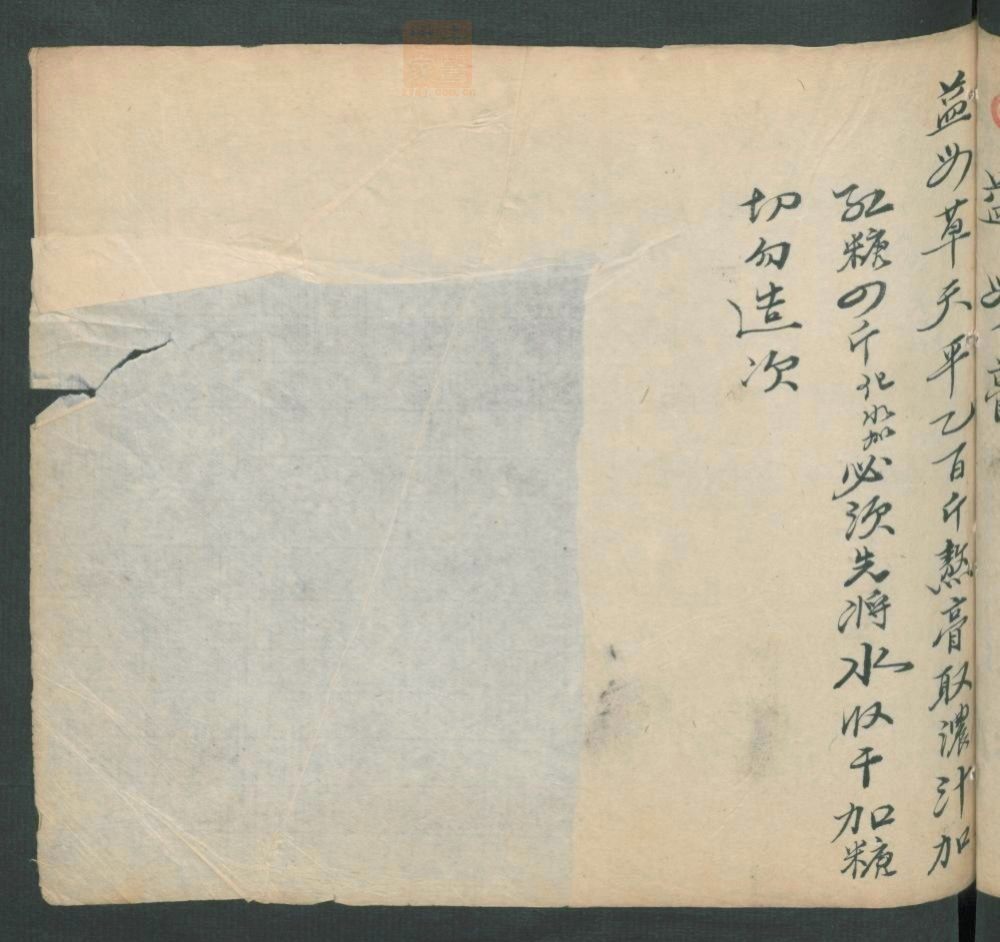 益母草天平乙百斤熬膏取濃汁加
紅糖四斤化水加必須先將水收干加糖
切勿造次